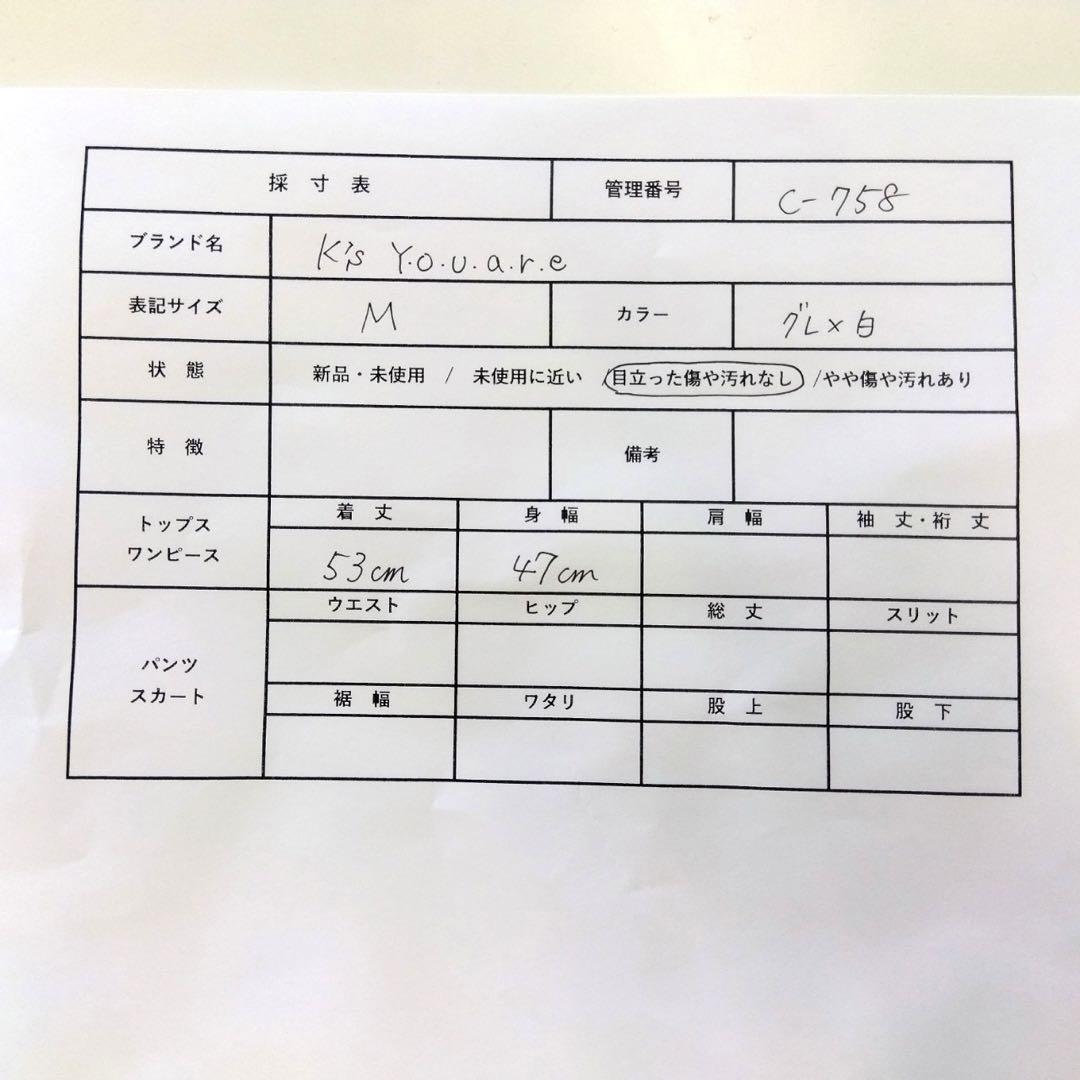 採 寸 表 管理番号 C-758
ブランド名 K's Y.o.u.a.r.e
表記サイズ M カラー グレ×白
状 態 新品・未使用 / 未使用に近い /目立った傷や汚れなし /やや傷や汚れあり
特 徴 備考
トップス
ワンピース
着 丈 身 幅 肩 幅 袖 丈・裄 丈
53cm 47cm
パンツ
スカート
ウエスト ヒップ 総 丈 スリット
裾 幅 ワタリ 股 上 股 下